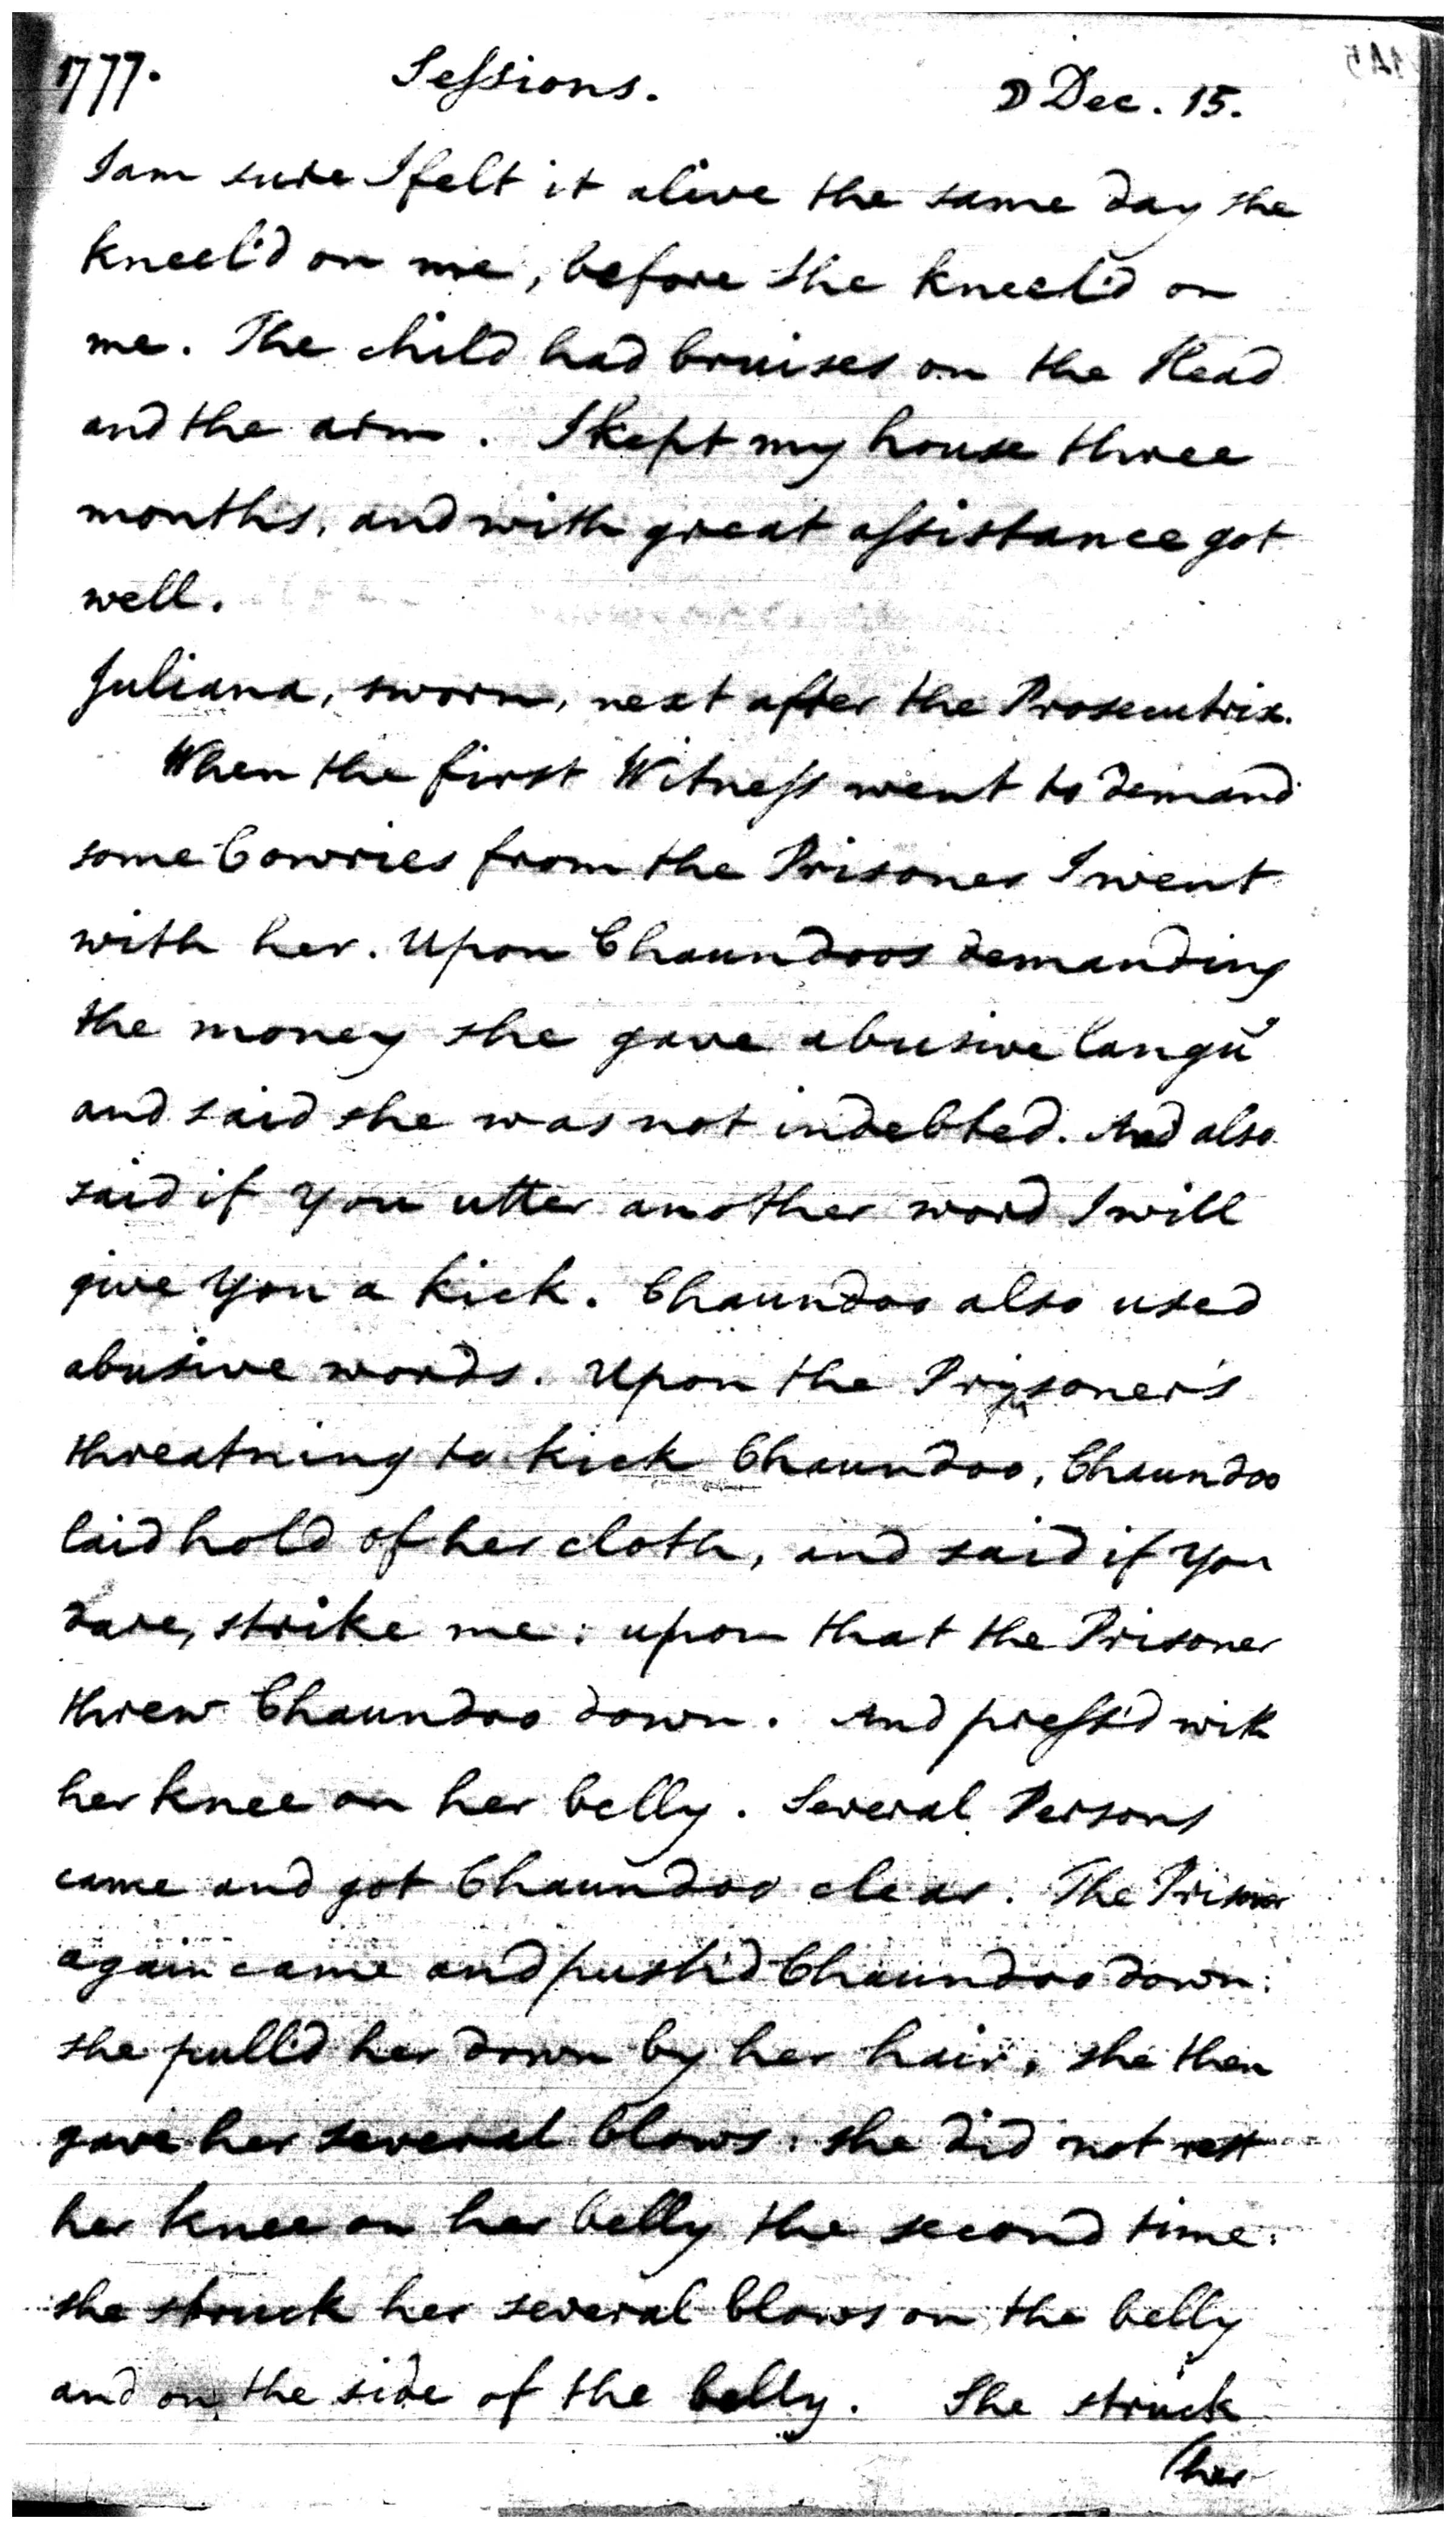 1777. Sessions. ☽ Dec. 15.
I am sure I felt it alive the same day she
kneel'd on me, before she kneel'd on
me. The child had bruises on the Head
and the arm. I kept my house three
months, and with great assistance got
well.
Juliana, sworn, next after the Prosecutrix.
When the first Witness went to demand
some Cowries from the Prisoner I went
with her. Upon Chaundoos demanding
the money she gave abusive langu͡e
and said she was not indebted. And also
said if you utter another word I will
give you a kick. Chaundoo also used
abusive words. Upon the Prisoner's
threatning to kick Chaundoo, Chaundoo
laid hold of her cloth, and said if you
dare, strike me: upon that the Prisoner
threw Chaundoo down. And press'd with
her knee on her belly. Several Persons
came and got Chaundoo clear. The Prisoner
again came and push'd Chaundoo down:
she pull'd her down by her hair, she then
gave her several blows: she did not rest
her knee on her belly the second time:
she struck her several blows on the belly
and on the side of the belly. She struck
(her